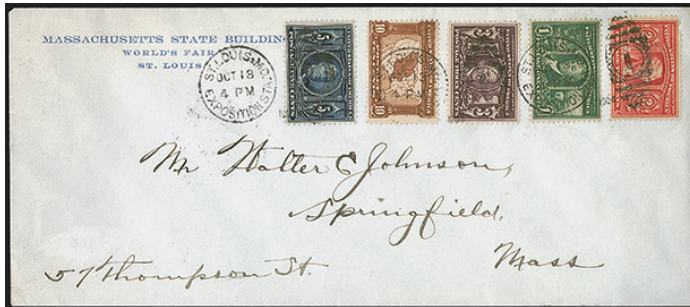 MASSACHUSETTS STATE BUILDIN
WORLD'S FAIR
ST. LOUIS
ST. LOUIS, MO.
OCT 18
4 PM
EXPOSITION STA.
Mr Walter C Johnson,
Springfield,
Mass
57 Thompson St.